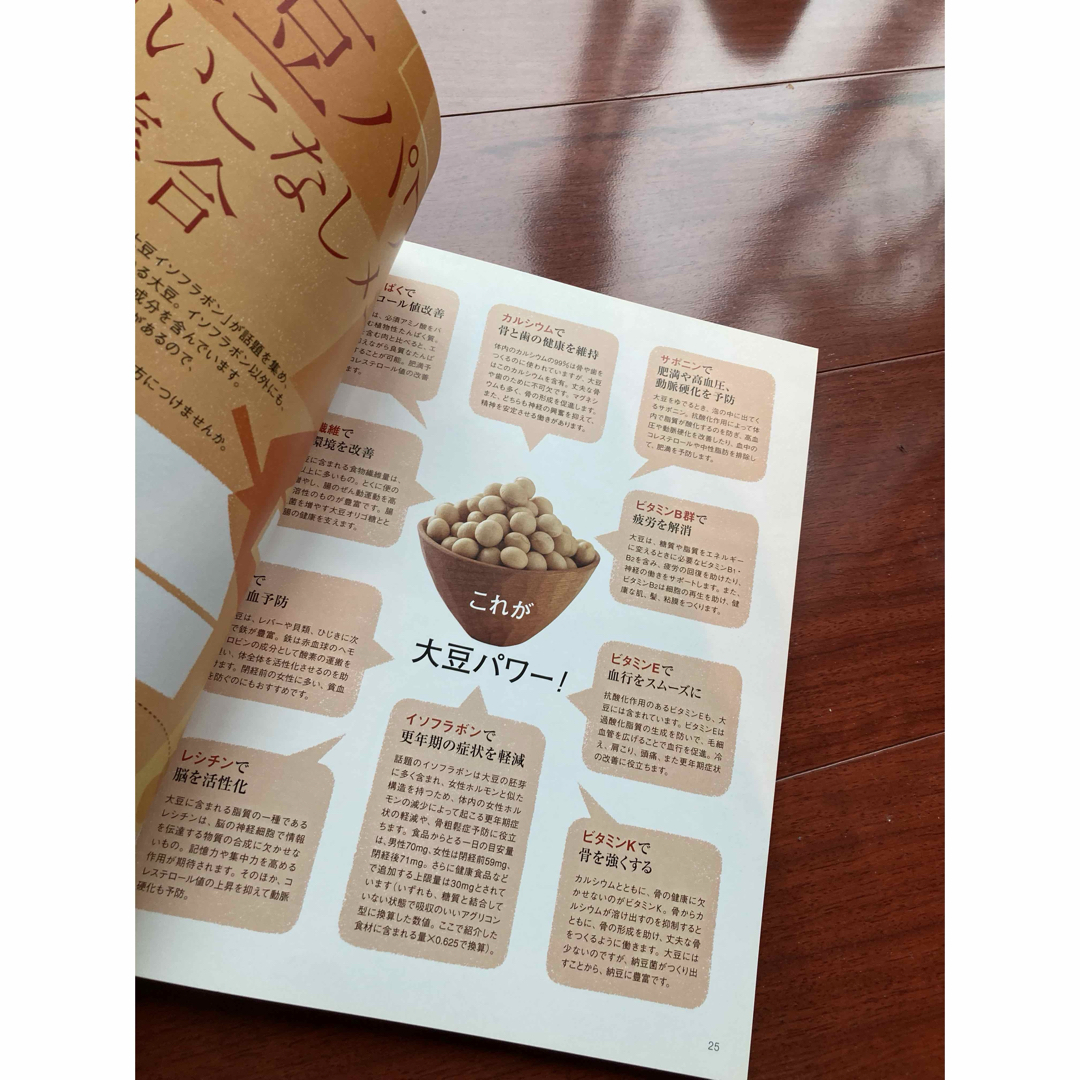 豆パ
いこなし
合
豆イソフラボン」が話題を集め、
る大豆。イソフラボン以外にも、
成分を含んでいます。
があるので、
方につけませんか。
ぱくで
コール値改善
は、必須アミノ酸をバ
む植物性たんぱく質。
含む肉と比べると、エ
えながら良質なたんぱ
することが可能。肥満予
コレステロール値の改善
ます。
カルシウムで
骨と歯の健康を維持
体内のカルシウムの99%は骨や歯を
つくるのに使われていますが、大豆
はこのカルシウムを含有。丈夫な骨
や歯のために不可欠です。マグネシ
ウムも多く、骨の形成を促進します。
また、どちらも神経の興奮を抑えて、
精神を安定させる働きがあります。
サポニンで
肥満や高血圧、
動脈硬化を予防
大豆をゆでるとき、泡の中に出てく
るサポニン。抗酸化作用によって体
内で脂質が酸化するのを防ぎ、高血
圧や動脈硬化を改善したり、血中の
コレステロールや中性脂肪を排除し
て、肥満を予防します。
繊維で
環境を改善
豆に含まれる食物繊維量は、
以上に多いもの。とくに便の
増やし、腸のぜん動運動を高
溶性のものが豊富です。腸
菌を増やす大豆オリゴ糖とと
腸の健康を支えます。
ビタミンB群で
疲労を解消
大豆は、糖質や脂質をエネルギー
に変えるときに必要なビタミンB1・
B2を含み、疲労の回復を助けたり、
神経の働きをサポートします。また、
ビタミンB2は細胞の再生を助け、健
康な肌、髪、粘膜をつくります。
で
血予防
豆は、レバーや貝類、ひじきに次
で鉄が豊富。鉄は赤血球のヘモ
ロビンの成分として酸素の運搬を
い、体全体を活性化させるのを助
ます。閉経前の女性に多い、貧血
を防ぐのにもおすすめです。
これが
大豆パワー!
ビタミンEで
血行をスムーズに
抗酸化作用のあるビタミンEも、大
豆には含まれています。ビタミンEは
過酸化脂質の生成を防いで、毛細
血管を広げることで血行を促進。冷
え、肩こり、頭痛、また更年期症状
の改善に役立ちます。
レシチンで
脳を活性化
大豆に含まれる脂質の一種である
レシチンは、脳の神経細胞で情報
を伝達する物質の合成に欠かせな
いもの。記憶力や集中力を高める
作用が期待されます。そのほか、コ
レステロール値の上昇を抑えて動脈
硬化も予防。
イソフラボンで
更年期の症状を軽減
話題のイソフラボンは大豆の胚芽
に多く含まれ、女性ホルモンと似た
構造を持つため、体内の女性ホル
モンの減少によって起こる更年期症
状の軽減や、骨粗鬆症予防に役立
ちます。食品からとる一日の目安量
は、男性70mg、女性は閉経前59mg、
閉経後71mg。さらに健康食品など
で追加する上限量は30mgとされて
います(いずれも、糖質と結合して
いない状態で吸収のいいアグリコン
型に換算した数値。ここで紹介した
食材に含まれる量×0.625で換算)。
ビタミンKで
骨を強くする
カルシウムとともに、骨の健康に欠
かせないのがビタミンK。骨からカ
ルシウムが溶け出すのを抑制すると
ともに、骨の形成を助け、丈夫な骨
をつくるように働きます。大豆には
少ないのですが、納豆菌がつくり出
すことから、納豆に豊富です。
25